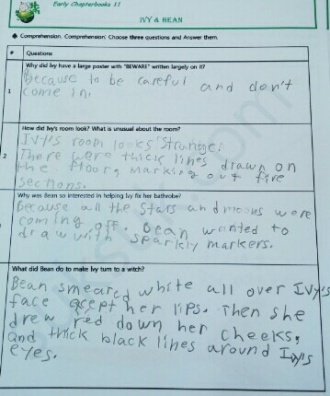 Early Chapterbooks 11
IVY & BEAN
Comprehension. Comprehension: Choose three questions and Answer them.
# Questions
Why did Ivy have a large poster with "BEWARE" written largely on it?
1 Because to be careful and don't
come in.
How did Ivy's room look? What is unusual about the room?
2 IVY's room looks strange.
There were thick lines drawn on
the floor, marking out five
sections.
Why was Bean so interested in helping Ivy fix her bathrobe?
Because all the stars and moons were
coming off. Bean wanted to
draw with sparkly markers.
What did Bean do to make Ivy turn to a witch?
Bean smeared white all over IVY's
face except her lips. Then she
drew red down her cheeks,
and thick black lines around IVy's
eyes.